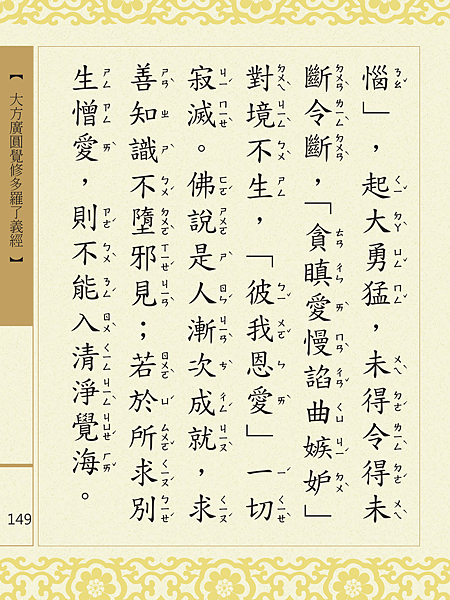 惱」，起大勇猛，未得令得未
斷令斷，「貪瞋愛慢諂曲嫉妒」
對境不生，「彼我恩愛」一切
寂滅。佛說是人漸次成就，求
善知識不墮邪見；若於所求別
生憎愛，則不能入清淨覺海。
【大方廣圓覺修多羅了義經】
149